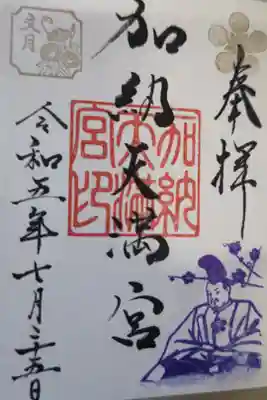 奉拝
加納天満宮
加納天満宮印
文月
令和五年七月二十五日